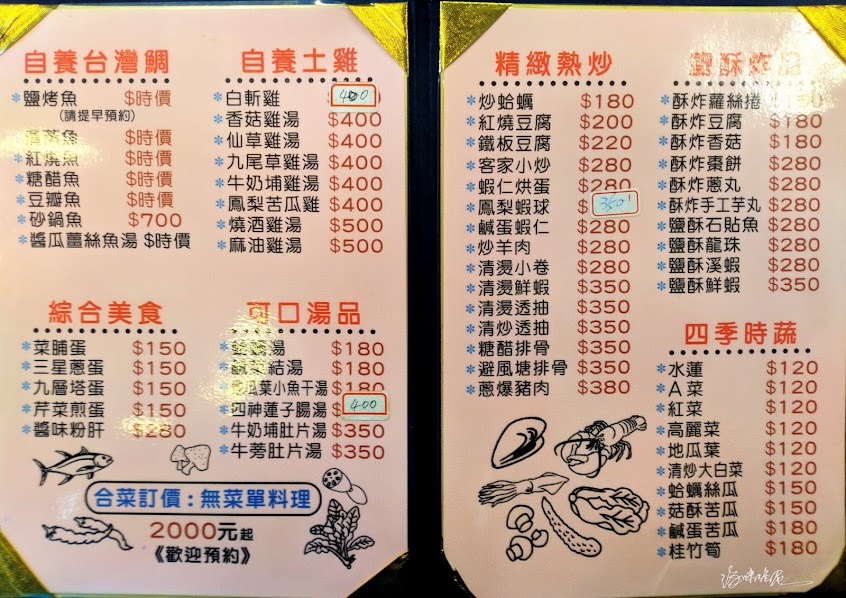 自養台灣鯛
鹽烤魚 $時價
(請提早預約)
$時價
紅燒魚 $時價
糖醋魚 $時價
豆瓣魚 $時價
砂鍋魚 $700
醬瓜薑絲魚湯 $時價
自養土雞
白斬雞 400
香菇雞湯 $400
仙草雞湯 $400
九尾草雞湯 $400
牛奶埔雞湯 $400
鳳梨苦瓜雞 $400
燒酒雞湯 $500
麻油雞湯 $500
綜合美食
菜脯蛋 $150
三星蔥蛋 $150
九層塔蛋 $150
芹菜煎蛋 $150
醬味粉肝 $280
可口湯品
蛤蠣湯 $180
結湯 $180
瓜葉小魚干湯 $180
四神蓮子腸湯 400
牛奶埔肚片湯 $350
牛蒡肚片湯 $350
合菜訂價:無菜單料理
2000元起
《歡迎預約》
精緻熱炒
炒蛤蠣 $180
紅燒豆腐 $200
鐵板豆腐 $220
客家小炒 $280
蝦仁烘蛋 $280
鳳梨蝦球 $ 350
鹹蛋蝦仁 $280
炒羊肉 $280
清燙小卷 $280
清燙鮮蝦 $350
清燙透抽 $350
清炒透抽 $350
糖醋排骨 $350
避風塘排骨 $350
蔥爆豬肉 $380
鹽酥炸品
酥炸蘿絲捲
酥炸豆腐 $180
酥炸香菇 $180
酥炸棗餅 $240
酥炸蔥丸 $240
酥炸手工芋丸 $280
鹽酥石貼魚 $280
鹽酥龍珠 $280
鹽酥溪蝦 $280
鹽酥鮮蝦 $350
四季時蔬
水蓮 $120
A菜 $120
紅菜 $120
高麗菜 $120
地瓜葉 $120
清炒大白菜 $120
蛤蠣絲瓜 $150
菇酥苦瓜 $150
鹹蛋苦瓜 $180
桂竹筍 $180